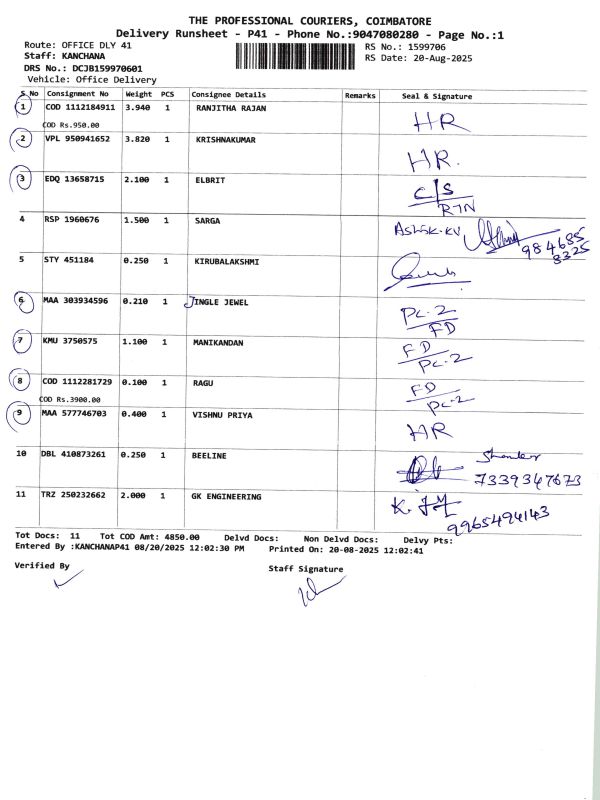 THE PROFESSIONAL COURIERS, COIMBATORE
Delivery Runsheet - P41 - Phone No.:9047080280 - Page No.:1
Route: OFFICE DLY 41 RS No.: 1599706
Staff: KANCHANA RS Date: 20-Aug-2025
DRS No.: DCJB159970601
Vehicle: Office Delivery
S No Consignment No Weight PCS Consignee Details Remarks Seal & Signature
1 COD 1112184911 3.940 1 RANJITHA RAJAN HR
COD Rs.950.00
2 VPL 950941652 3.820 1 KRISHNAKUMAR HR.
3 EDQ 13658715 2.100 1 ELBRIT C/S
RTN
4 RSP 1960676 1.500 1 SARGA ASHOK-KV
984685
8325
5 STY 451184 0.250 1 KIRUBALAKSHMI
6 MAA 303934596 0.210 1 JINGLE JEWEL PC-2
FD
7 KMU 3750575 1.100 1 MANIKANDAN FD
PC-2
8 COD 1112281729 0.100 1 RAGU FD
PC-2
COD Rs.3900.00
9 MAA 577746703 0.400 1 VISHNU PRIYA HR
10 DBL 410873261 0.250 1 BEELINE
7339347673
11 TRZ 250232662 2.000 1 GK ENGINEERING K.
9965494143
Tot Docs: 11 Tot COD Amt: 4850.00 Delvd Docs: Non Delvd Docs: Delvy Pts:
Entered By :KANCHANAP41 08/20/2025 12:02:30 PM Printed On: 20-08-2025 12:02:41
Verified By Staff Signature